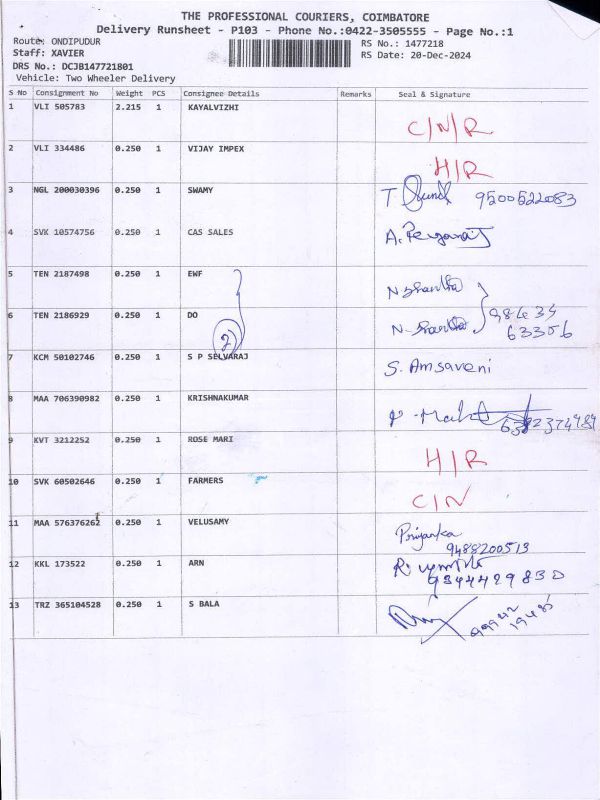 THE PROFESSIONAL COURIERS, COIMBATORE
Delivery Runsheet - P103 - Phone No.:0422-3505555 - Page No.:1
Route: ONDIPUDUR RS No.: 1477218
Staff: XAVIER RS Date: 20-Dec-2024
DRS No.: DCJB147721801
Vehicle: Two Wheeler Delivery
S No Consignment No Weight PCS Consignee Details Remarks Seal & Signature
1 VLI 505783 2.215 1 KAYALVIZHI C/N/R
2 VLI 334486 0.250 1 VIJAY IMPEX H/R
3 NGL 200030396 0.250 1 SWAMY 9500522083
4 SVK 10574756 0.250 1 CAS SALES
5 TEN 2187498 0.250 1 EWF N. Shantha
6 TEN 2186929 0.250 1 DO N. Shantha
2
7 KCM 50102746 0.250 1 S P SELVARAJ S. Amsaveni
8 MAA 706390982 0.250 1 KRISHNAKUMAR
9 KVT 3212252 0.250 1 ROSE MARI H/R
10 SVK 60502646 0.250 1 FARMERS C/N
11 MAA 576376262 0.250 1 VELUSAMY Priyanka
9488200513
12 KKL 173522 0.250 1 ARN
9344429830
13 TRZ 365104528 0.250 1 S BALA